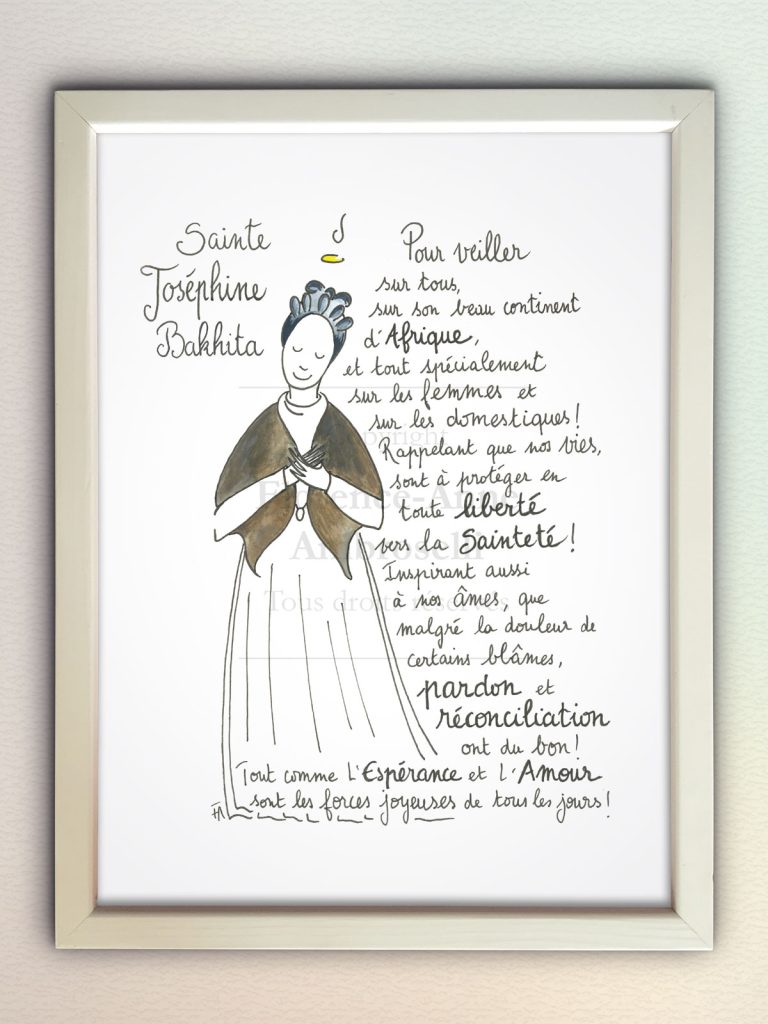 Sainte
Joséphine
Bakhita
Pour veiller
sur tous,
sur son beau continent
d'Afrique,
et tout spécialement
sur les femmes et
sur les domestiques !
Rappelant que nos vies,
sont à protéger en
toute liberté
vers la Sainteté !
Inspirant aussi
à nos âmes, que
malgré la douleur de
certains blâmes,
pardon et
réconciliation
ont du bon !
Tout comme l'Espérance et l'Amour
sont les forces joyeuses de tous les jours !
FA
Copyright
Florence-Anne
Ambroselli
Tous droits réservés